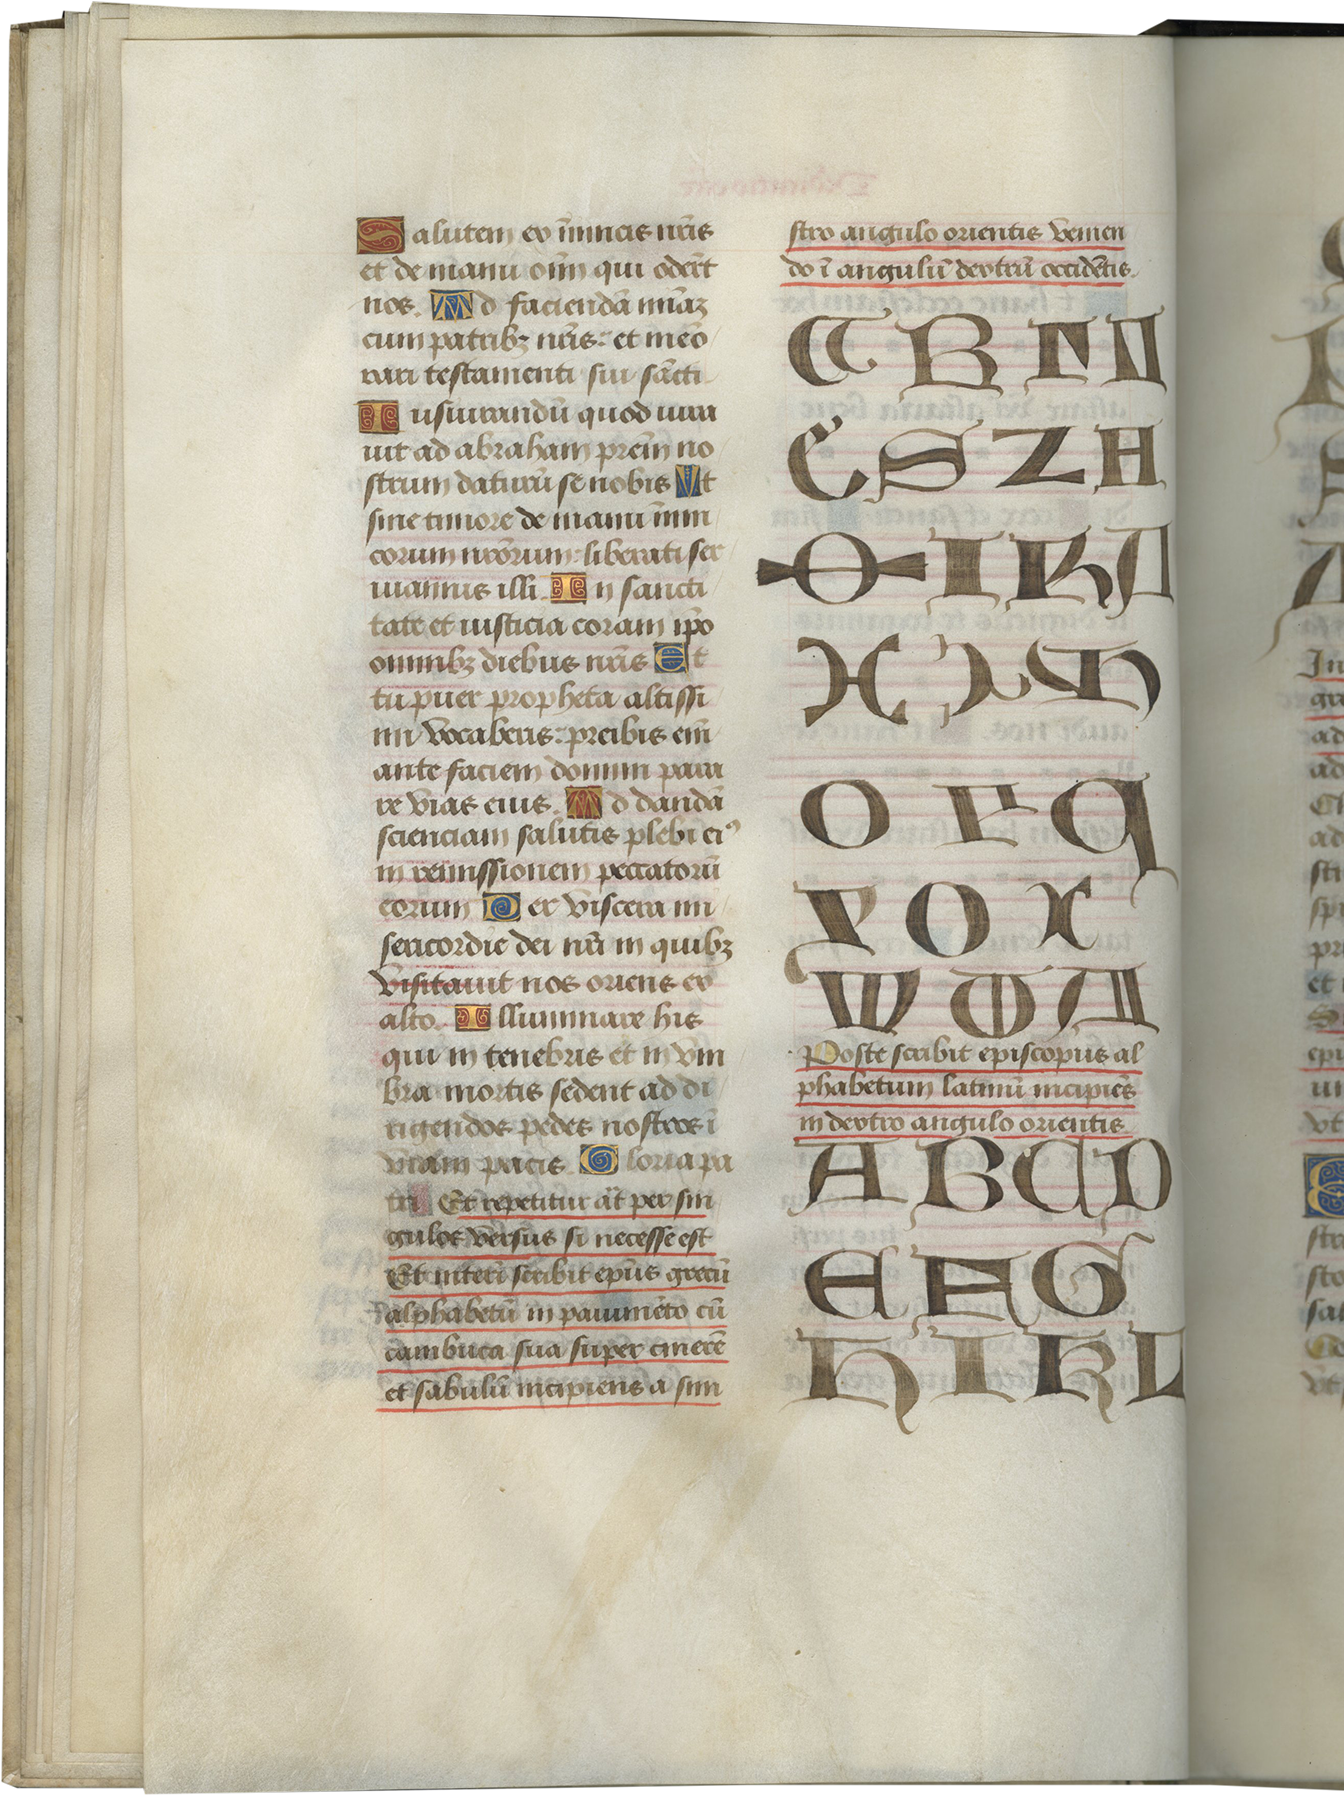 Salutem ex inimicis nr̄is
et de manu om̄n qui odēr̄t
nos. Ad faciendā mīaz
cum patribꝫ nr̄is: et memo
rari testamenti sui sācti
Iusiurandū quod iura
uit ad abraham prēm no
strum daturū se nobis Vt
sine timore de manu inimi
corum nr̄orum liberati ser
uiamus illi. In sancti
tate et iusticia coram ip̄o
omnibꝫ diebus nr̄is Et
tu puer propheta altissi
mi vocaberis: preibis em̄
ante faciem domini para
re vias eius. Ad dandā
scienciam salutis plebi eiꝰ
in remissionem peccatorū
eorum Per viscera mi
sericordie dei nr̄i in quibꝫ
visitauit nos oriens ex
alto. Illuminare his
qui in tenebris et in vm
bra mortis sedent ad di
rigendos pedes nostros ī
viam pacis Gloria pa
tri Et repetitur āt per sin
gulos versus si necesse est
Et interī scribit ep̄us grecū
alphabetū in pauimēto cū
cambuca sua super cinerē
et sabulū incipiens a sini
stro angulo orientis venien
do ī angulū dextrū occidētis.
A B Γ Δ
E S Z H
Θ I K Λ
O Γ q
P O X
Ψ
Poste scribit episcopus al
phabetum latinū incipiēs
in dextro angulo orientis
A B C D
E F G
H I K L